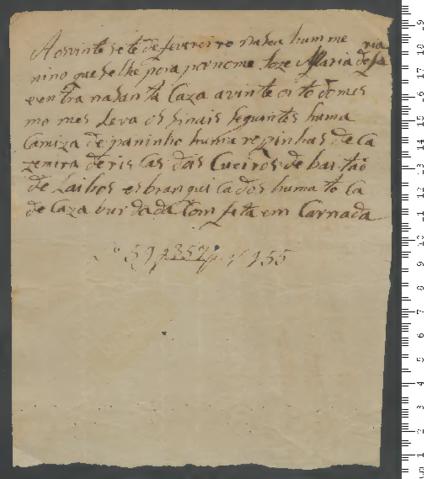 Aos vinte sete de fevereiro nasceu hum me
nino que se lhe pora por nome Joze Maria de Fa
ria
e entra na Santa Caza a vinte oito do mes
mo mes leva os sinais seguintes huma
Camiza de paninho huma repinhas de Ca
zemira de riscas das Cueiros de baetão
de Laibos esbranquiçados huma toCa
de Caza burdada Com fita emCarnada